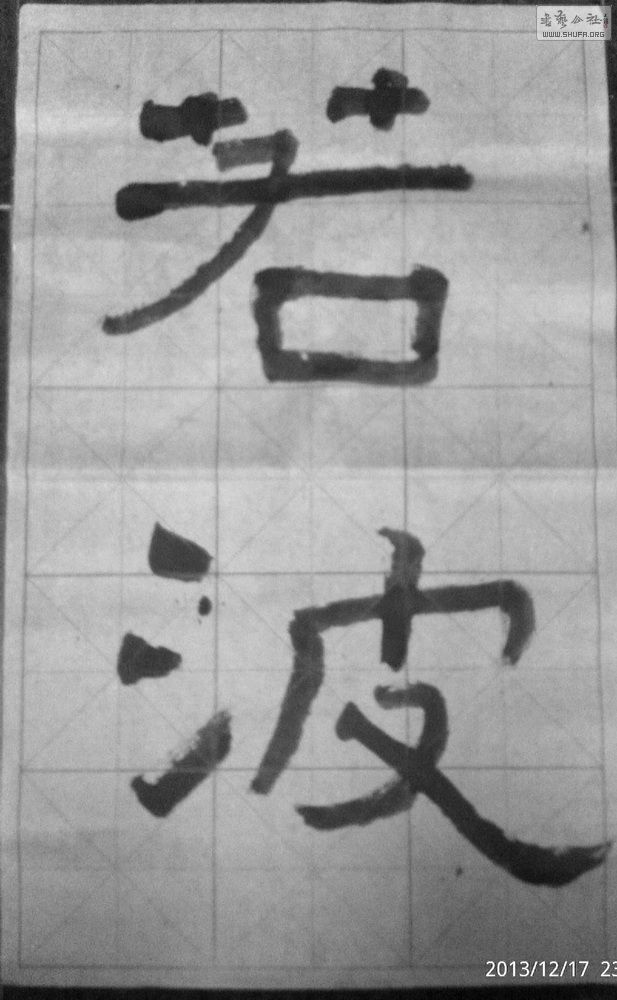 书艺公社
WWW.SHUFA.ORG
若
波
2013/12/17 23